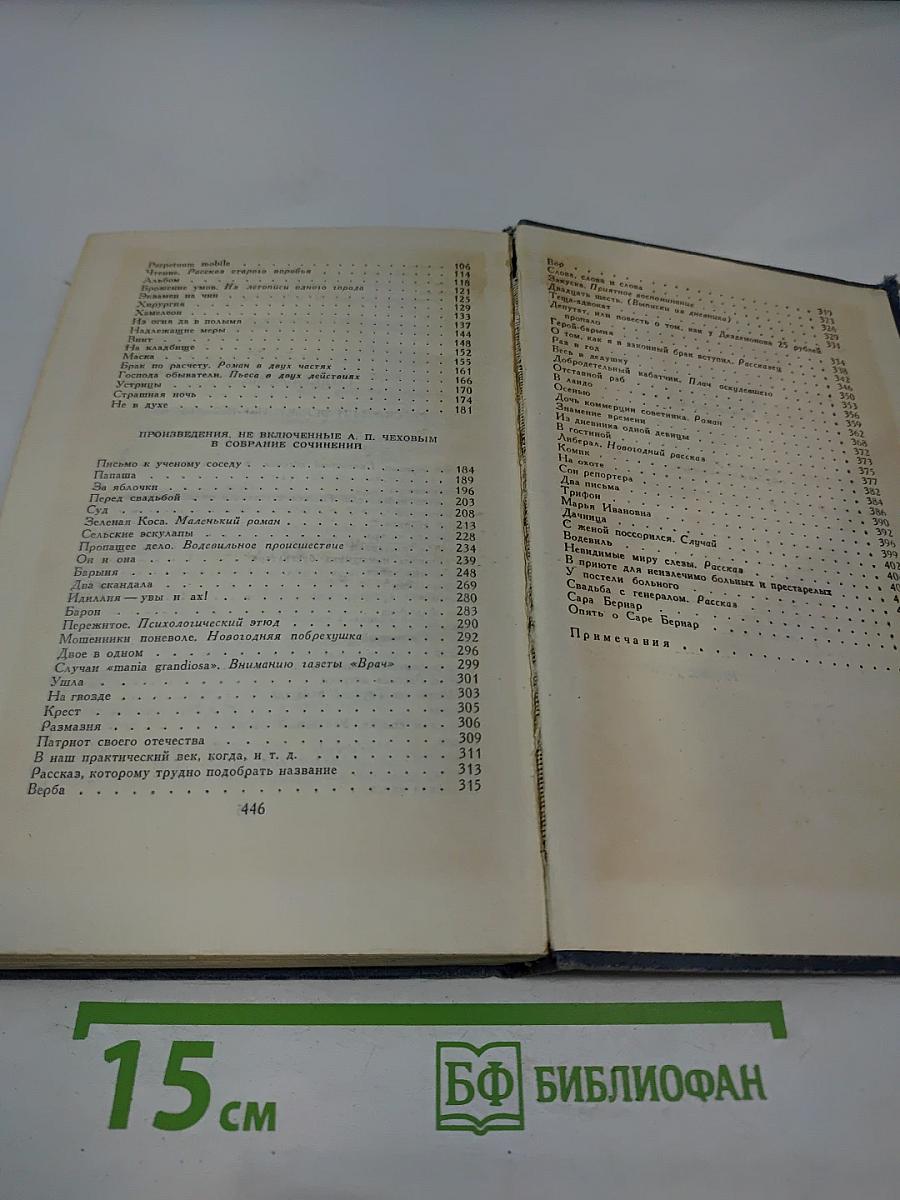 Perpetuum mobile . . . 106
Чтение. Рассказ старого воробья . . . 114
Альбом . . . 118
Брожение умов. Из летописи одного города . . . 121
Экзамен на чин . . . 125
Хирургия . . . 129
Хамелеон . . . 133
Из огня да в полымя . . . 137
Надлежащие меры . . . 144
Винт . . . 148
На кладбище . . . 152
Маска . . . 155
Брак по расчету. Роман в двух частях . . . 161
Господа обыватели. Пьеса в двух действиях . . . 166
Устрицы . . . 170
Страшная ночь . . . 174
Не в духе . . . 181
ПРОИЗВЕДЕНИЯ, НЕ ВКЛЮЧЕННЫЕ А. П. ЧЕХОВЫМ
В СОБРАНИЕ СОЧИНЕНИЙ
Письмо к ученому соседу . . . 184
Папаша . . . 189
За яблочки . . . 196
Перед свадьбой . . . 203
Суд . . . 208
Зеленая Коса. Маленький роман . . . 213
Сельские эскулапы . . . 228
Пропащее дело. Водевильное происшествие . . . 234
Он и она . . . 239
Барыня . . . 248
Два скандала . . . 269
Идиллия — увы и ах! . . . 280
Барон . . . 283
Пережитое. Психологический этюд . . . 290
Мошенники поневоле. Новогодняя побрехушка . . . 292
Двое в одном . . . 296
Случаи «mania grandiosa». Вниманию газеты «Врач» . . . 299
Ушла . . . 301
На гвозде . . . 303
Крест . . . 305
Размазня . . . 306
Патриот своего отечества . . . 309
В наш практический век, когда, и т. д. . . . 311
Рассказ, которому трудно подобрать название . . . 313
Верба . . . 315
446
Вор . . . 319
Слова, слова и слова . . . 323
Закуска. Приятное воспоминание . . . 326
Двадцать шесть. (Выписки из дневника) . . . 329
Теща-адвокат . . . 331
Депутат, или повесть о том, как у Дездемонова 25 рублей
пропало . . . 334
Герой-барыня . . . 338
О том, как я в законный брак вступил. Рассказец . . . 342
Раз в год . . . 346
Весь в дедушку . . . 350
Добродетельный кабатчик. Плач оскудевшего . . . 353
Отставной раб . . . 356
В ландо . . . 359
Осенью . . . 362
Дочь коммерции советника. Роман . . . 368
Знамение времени . . . 372
Из дневника одной девицы . . . 373
В гостиной . . . 375
Либерал. Новогодний рассказ . . . 377
Комик . . . 382
На охоте . . . 384
Сон репортера . . . 386
Два письма . . . 390
Трифон . . . 392
Марья Ивановна . . . 396
Дачница . . . 399
С женой поссорился. Случай
Водевиль
Невидимые миру слезы. Рассказ
В приюте для неизлечимо больных и престарелых
У постели больного
Свадьба с генералом. Рассказ
Сара Бернар
Опять о Саре Бернар
Примечания
15 см
БФ БИБЛИОФАН